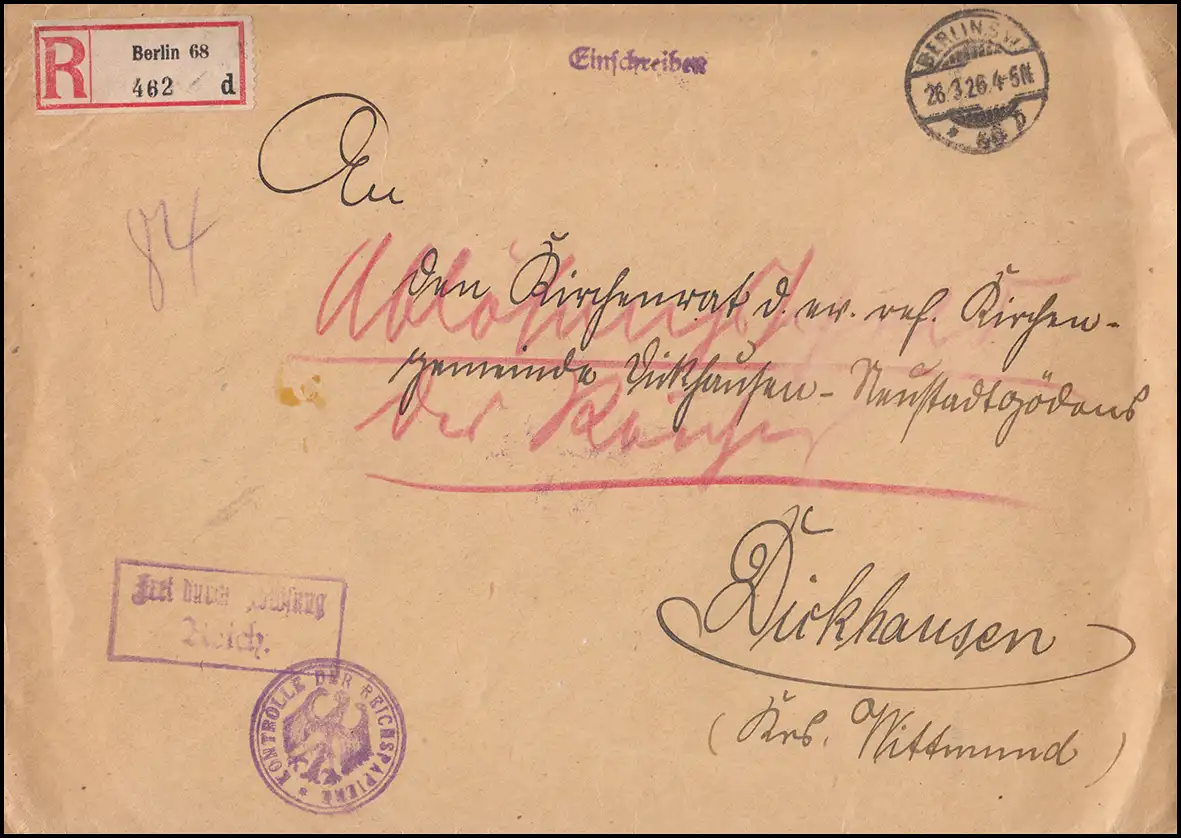 R
Berlin 68
462 d
Einschreiben
BERLIN S.W.
26.3.26.4-5N.
* 68 D
An
84
den Kirchenrat d. ev. ref. Kirchen-
gemeinde Dickhausen-Neustadtgödens
Ablösung
der
Dickhausen
(Krs. Wittmund)
Frei durch Ablösung
Reich.
KONTROLLE DER REICHSPAPIERE *